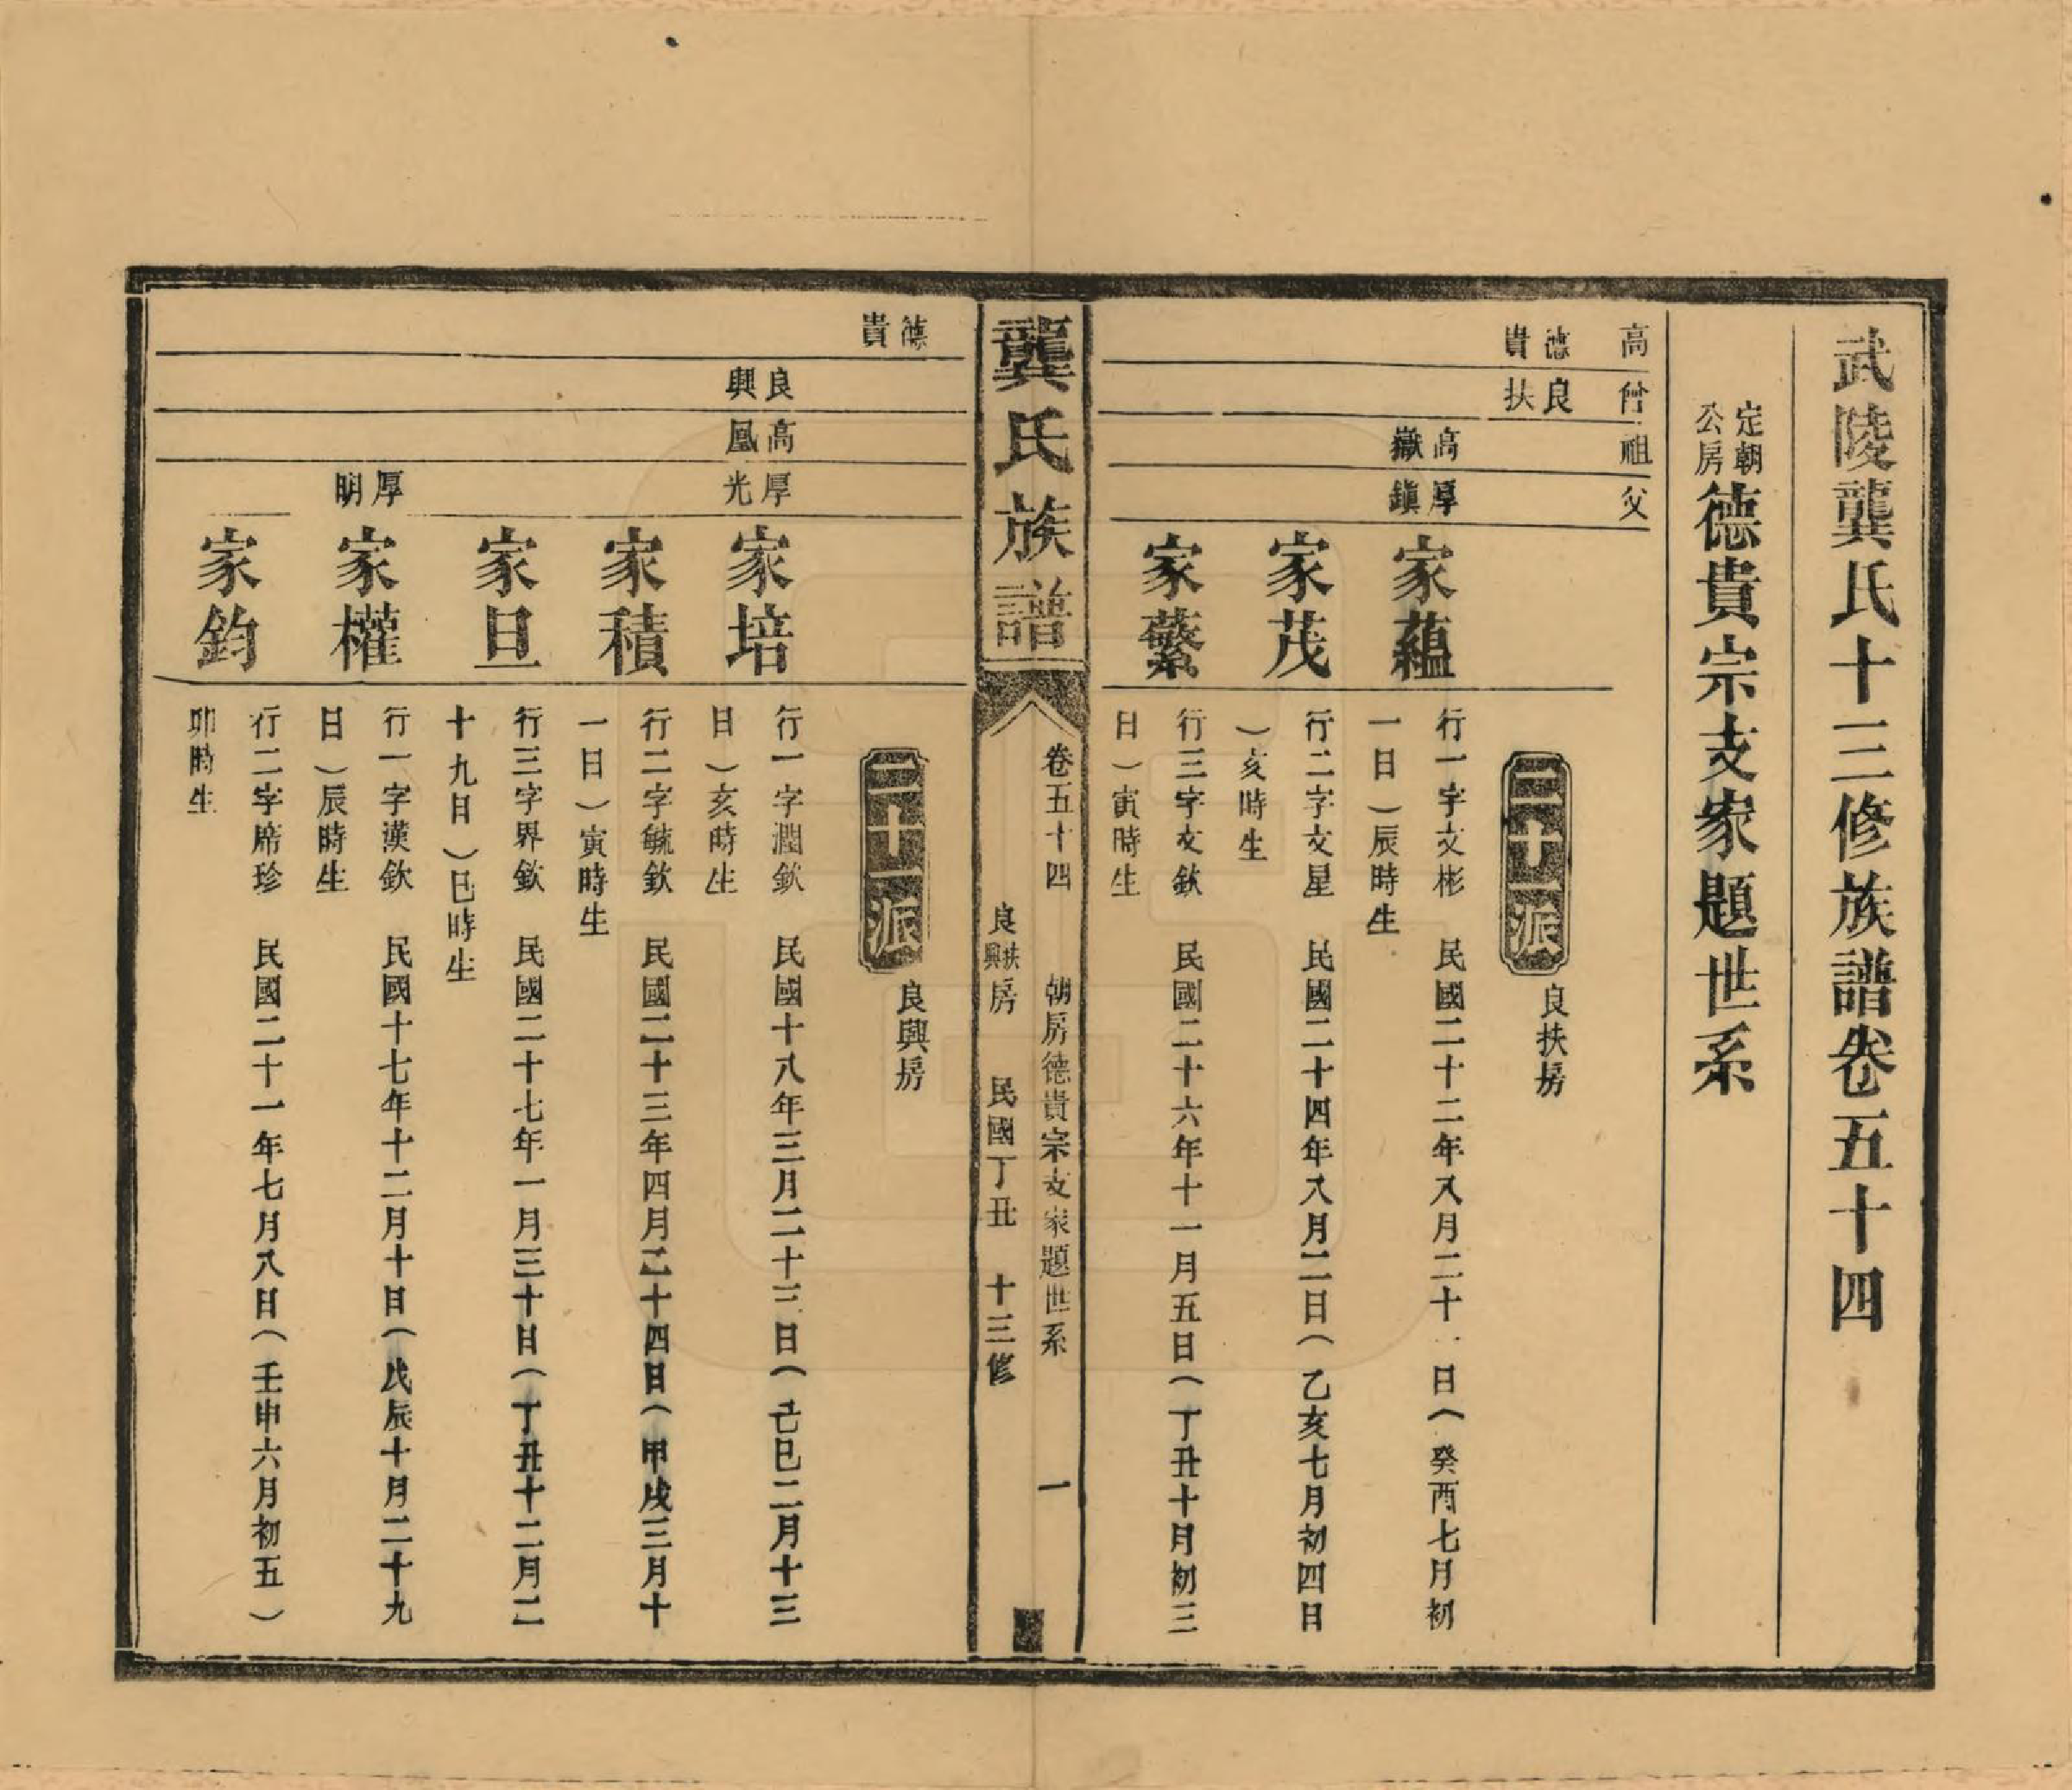 武陵龔氏十三修族譜卷五十四
定朝公房德貴宗支家題世系
高
曾
祖
父
德貴
良扶
二十一派
良扶房
高嶽
厚鎮
家蘊
行一字文彬 民國二十二年八月二十一日(癸酉七月初
一日)辰時生
家茂
行二字文星 民國二十四年八月二日(乙亥七月初四日
)亥時生
家蘩
行三字文欽 民國二十六年十一月五日(丁丑十月初三
日)寅時生
龔氏族譜
卷五十四 朝房德貴宗支家題世系 一
良扶興房 民國丁丑 十三修
德貴
二十一派
良興房
良興
高鳳
厚光
家培
行一字潤欽 民國十八年三月二十三日(己巳二月十三
日)亥時生
家積
行二字毓欽 民國二十三年四月二十四日(甲戌三月十
一日)寅時生
家旦
行三字界欽 民國二十七年一月三十日(丁丑十二月二
十九日)巳時生
厚明
家權
行一字漢欽 民國十七年十二月十日(戊辰十月二十九
日)辰時生
家鈞
行二字席珍 民國二十一年七月八日(壬申六月初五)
卯時生